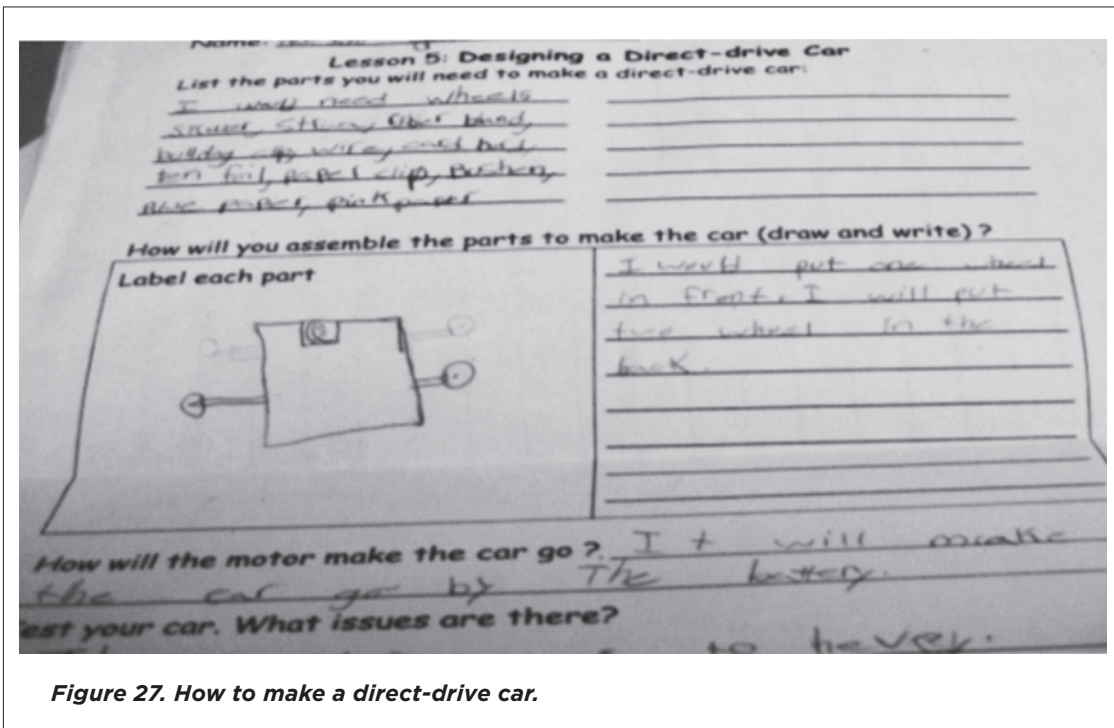 Name:
Lesson 5: Designing a Direct-drive Car
List the parts you will need to make a direct-drive car:
I need wheels
band,
wire,
foil, paper clip,
paper, pink paper
How will you assemble the parts to make the car (draw and write) ?
Label each part
I would put one wheel
in front. I will put
two wheel in the
back.
How will the motor make the car go ? It will make
the car go by The battery.
est your car. What issues are there?
to hevey.
Figure 27. How to make a direct-drive car.